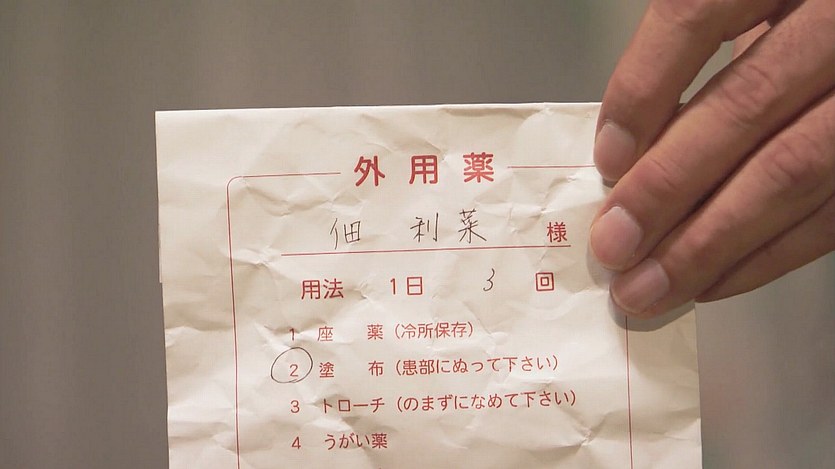 外用薬
佃 利菜 様
用法 1日 3 回
1 座 薬 (冷所保存)
2 塗 布 (患部にぬって下さい)
3 トローチ (のまずになめて下さい)
4 うがい薬